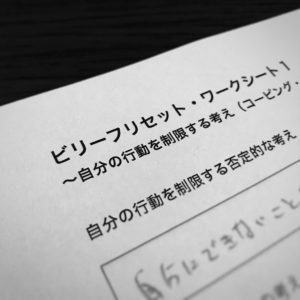 ビリーフリセット・ワークシート1
～自分の行動を制限する考え（コーピング・
自分の行動を制限する否定的な考え
自分にできないこと
の考え